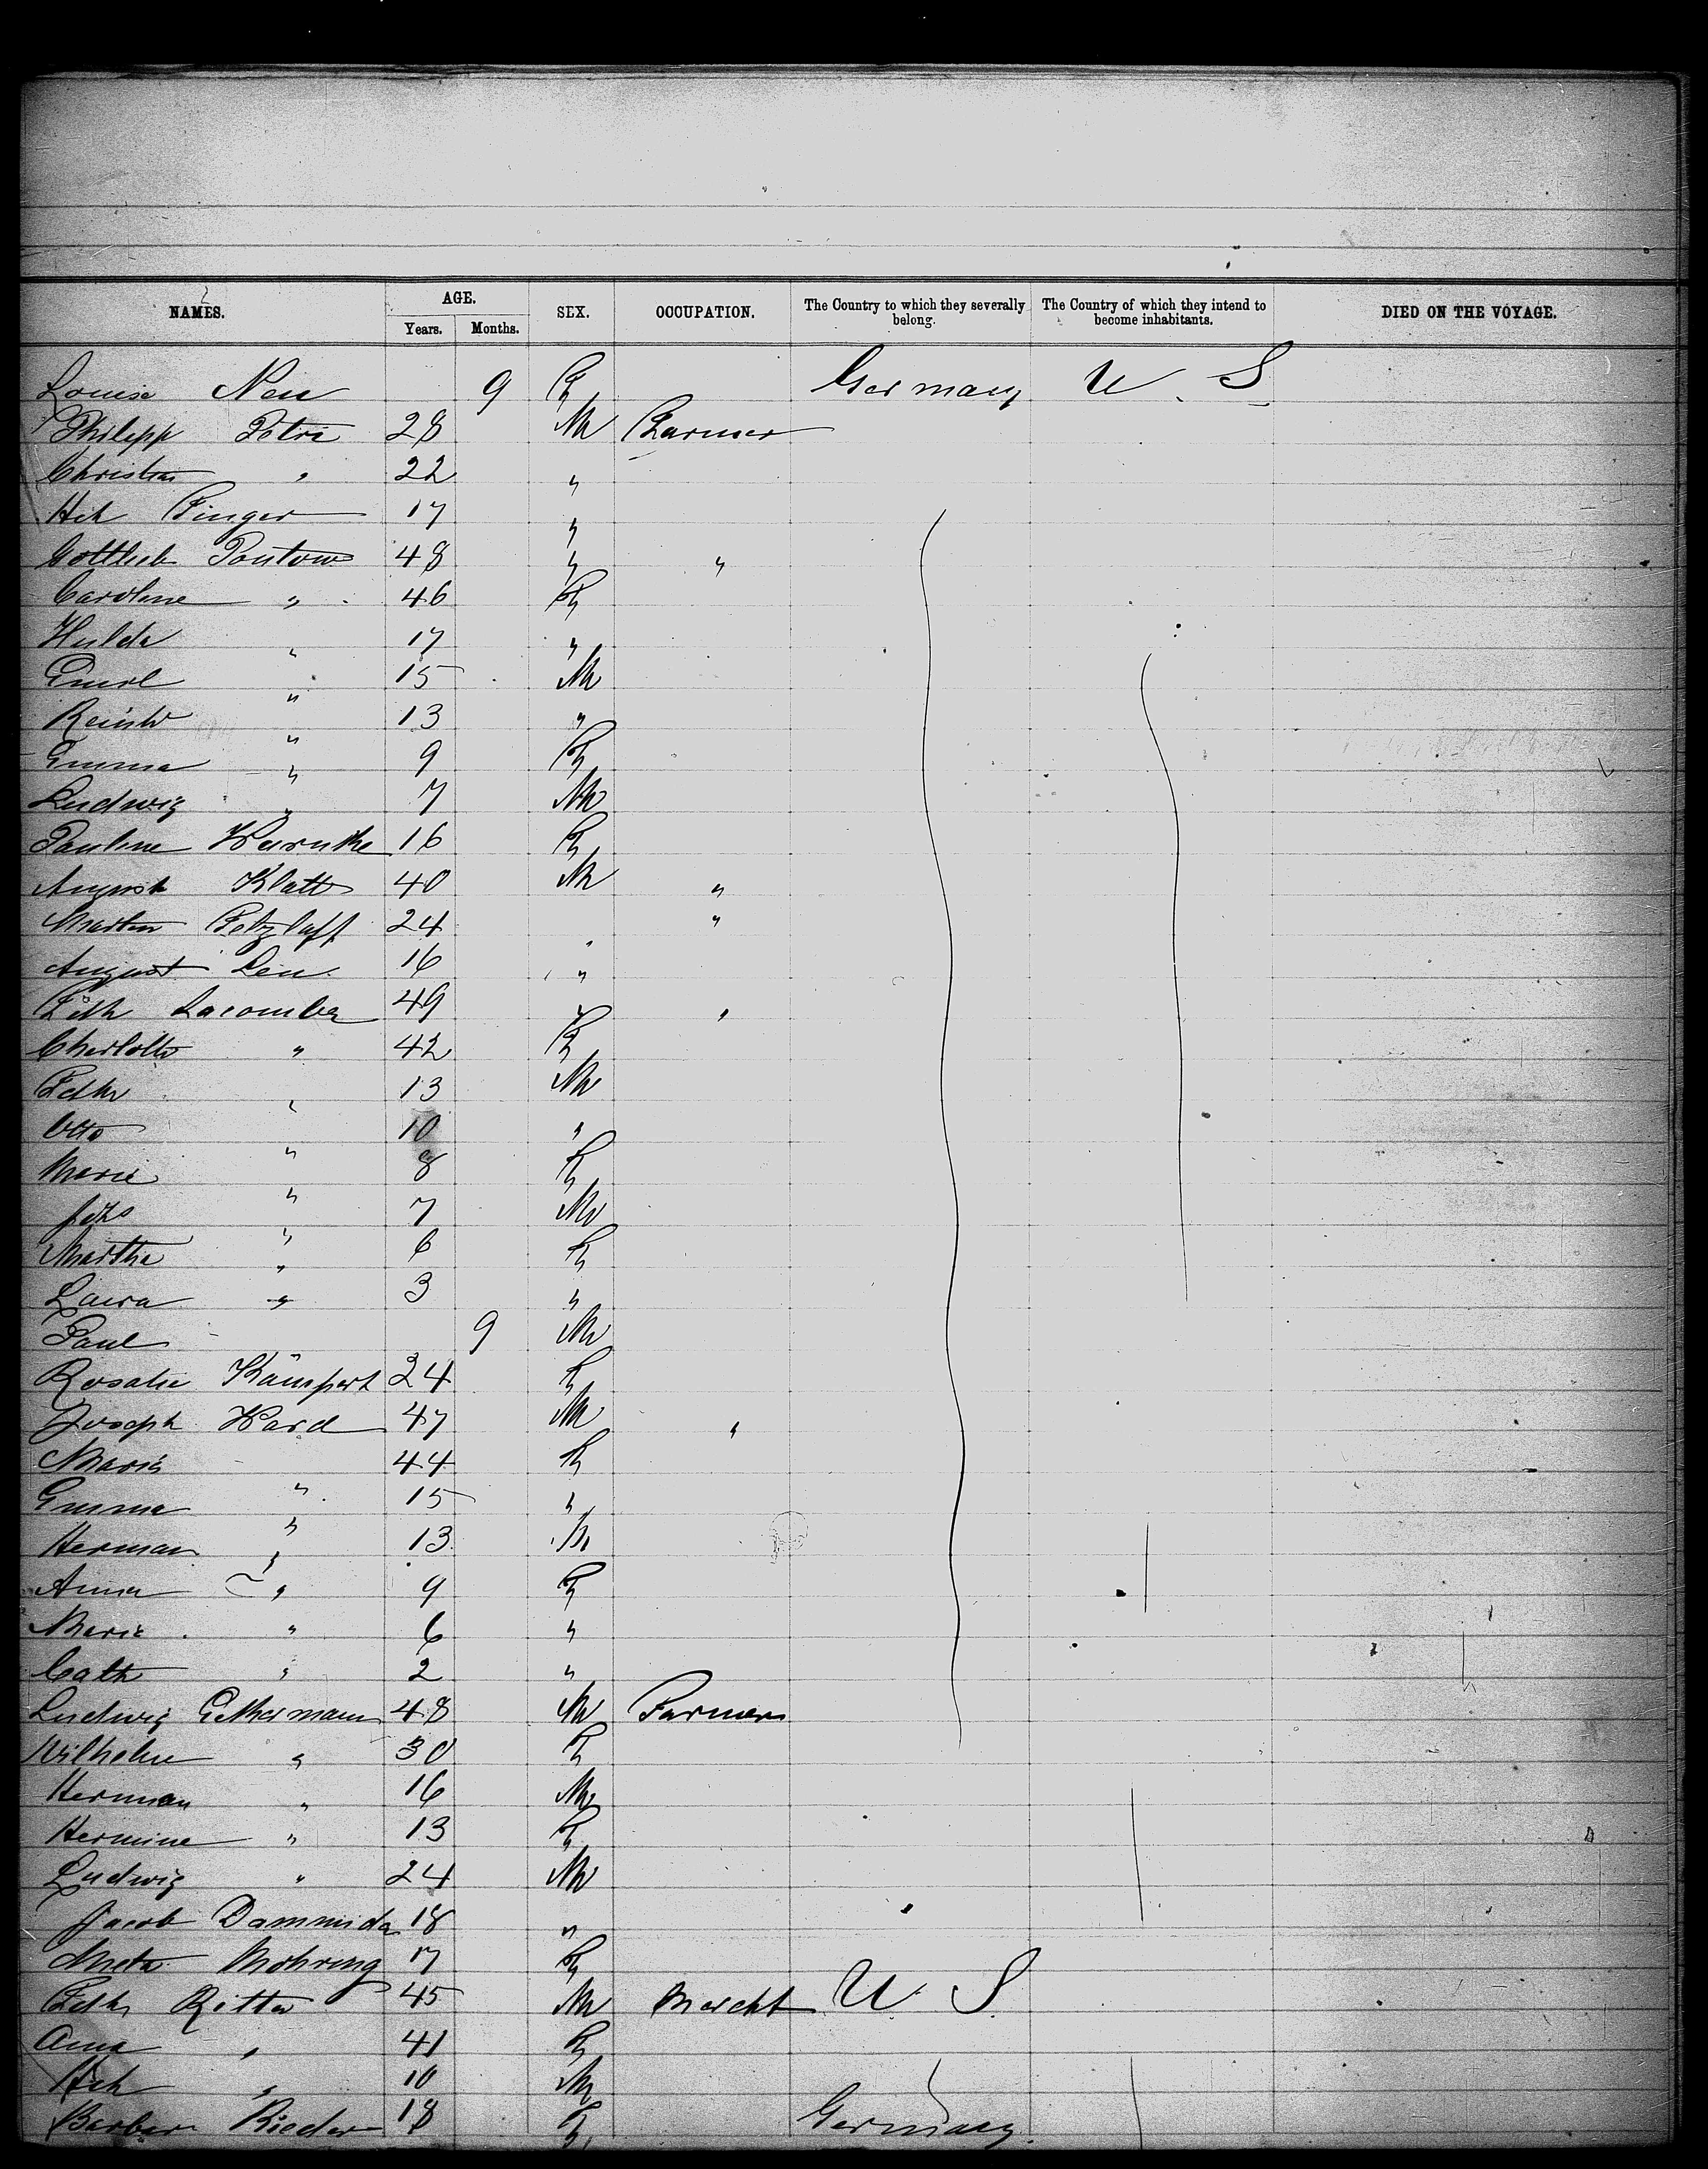 NAMES. AGE. Years. Months. SEX. OCCUPATION. The Country to which they severally belong. The Country of which they intend to become inhabitants. DIED ON THE VOYAGE.
Louise Neu 9 F Germany U. S.
Philipp Petri 28 M Farmer
Christian " 22 "
Hch Finger 17 "
Gottlieb Pontow 48 " "
Caroline " 46 F
Hulda " 17 "
Emil " 15 M
Reinh " 13 "
Emma " 9 F
Ludwig " 7 M
Pauline 16 F
August Klatt 40 M "
Martin Petzlaff 24 " "
August Leu 16 "
Fdch Lacombe 49 " "
Charlotte " 42 F
Fdch " 13 M
Otto " 10 "
Marie " 8 F
Johs " 7 M
Martha " 6 F
Laura " 3 "
Paul 9 M
Rosalie Kämpert 24 F
Joseph Hard 47 M "
Marie " 44 F
Emma " 15 "
Herman " 13 M
Anna " 9 F
Marie " 6 "
Cath " 2 "
Ludwig 48 M Farmer
Wilhelm " 30 F
Herman " 16 M
Hermine " 13 F
Ludwig " 24 M
Jacob 18 "
Meta Mohring 17 F
Fdch Ritter 45 M Marcht U. S.
Anna " 41 F
Hch " 10 M
Barbara Rieder 18 F Germany